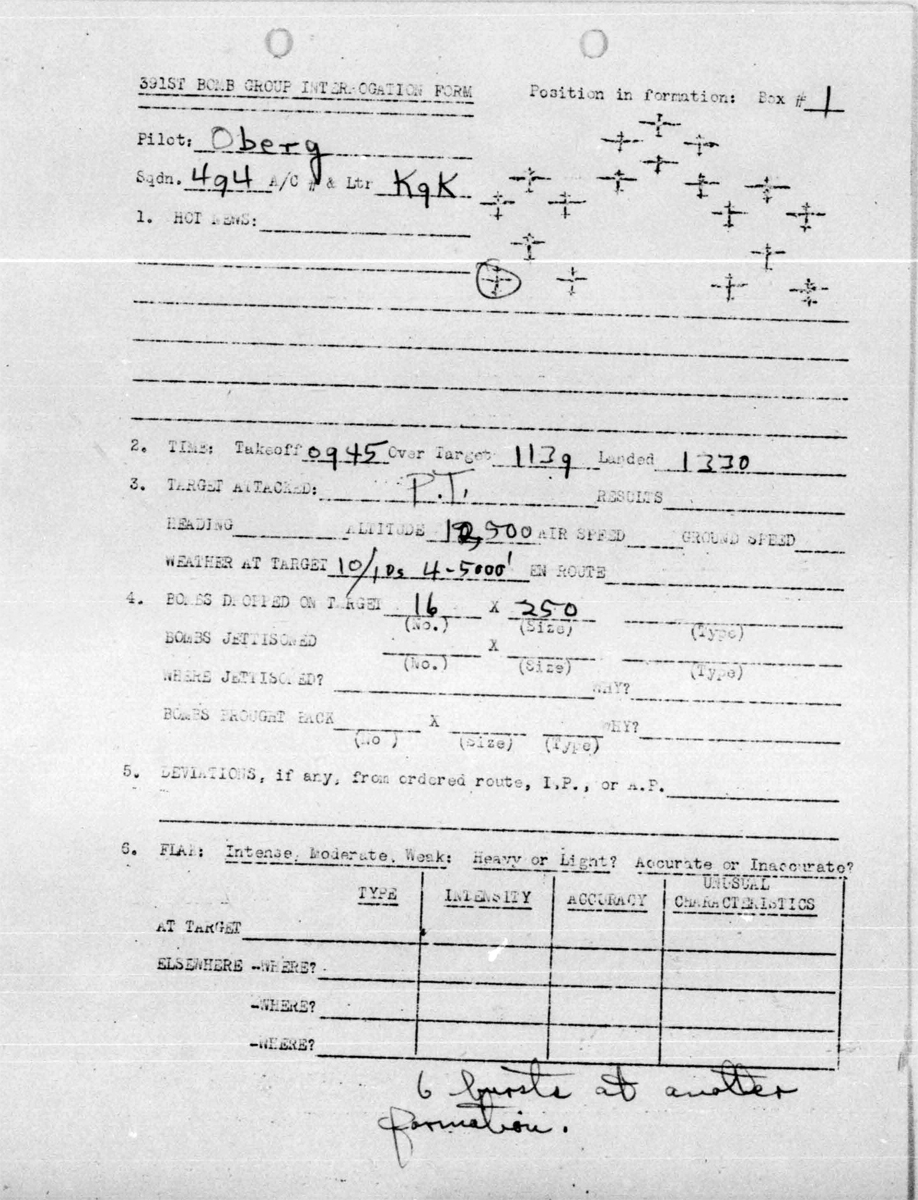 391ST BOMB GROUP INTERROGATION FORM
Position in formation: Box # 1
Pilot: Oberg
Sqdn. 494 A/C # & Ltr K9K
1. HOT NEWS:
2. TIME: Takeoff 0945 Over Target 1139 Landed 1330
3. TARGET ATTACKED: P.T. RESULTS
HEADING ALTITUDE 12,500 AIR SPEED GROUND SPEED
WEATHER AT TARGET 10/10s 4-5000' EN ROUTE
4. BOMBS DROPPED ON TARGET 16 X 250
(No.) (Size) (Type)
BOMBS JETTISONED X
(No.) (Size) (Type)
WHERE JETTISONED? WHY?
BOMBS BROUGHT BACK X WHY?
(No ) (Size) (Type)
5. DEVIATIONS, if any, from ordered route, I.P., or A.P.
6. FLAK: Intense, Moderate, Weak: Heavy or Light? Accurate or Inaccurate?
TYPE INTENSITY ACCURACY UNUSUAL CHARACTERISTICS
AT TARGET
ELSEWHERE -WHERE?
-WHERE?
-WHERE?
6 bursts at another
formation.